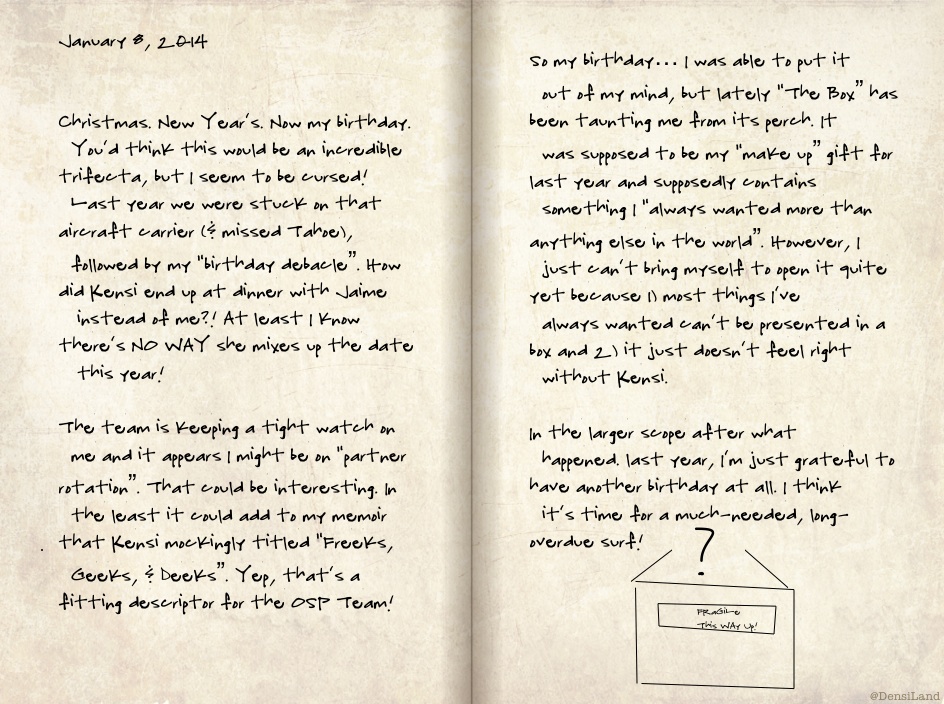 January 8, 2014
Christmas. New Year's. Now my birthday.
You'd think this would be an incredible
trifecta, but I seem to be cursed!
Last year we were stuck on that
aircraft carrier (& missed Tahoe),
followed by my "birthday debacle". How
did Kensi end up at dinner with Jaime
instead of me?! At least I know
there's NO WAY she mixes up the date
this year!
The team is keeping a tight watch on
me and it appears I might be on "partner
rotation". That could be interesting. In
the least it could add to my memoir
that Kensi mockingly titled "Freeks,
Geeks, & Deeks". Yep, that's a
fitting descriptor for the OSP Team!
So my birthday... I was able to put it
out of my mind, but lately "The Box" has
been taunting me from its perch. It
was supposed to be my "make up" gift for
last year and supposedly contains
something I "always wanted more than
anything else in the world". However, I
just can't bring myself to open it quite
yet because 1) most things I've
always wanted can't be presented in a
box and 2) it just doesn't feel right
without Kensi.
In the larger scope after what
happened. last year, I'm just grateful to
have another birthday at all. I think
it's time for a much-needed, long-
overdue surf!
?
FRaGiLe
This WAY Up!
@DensiLand